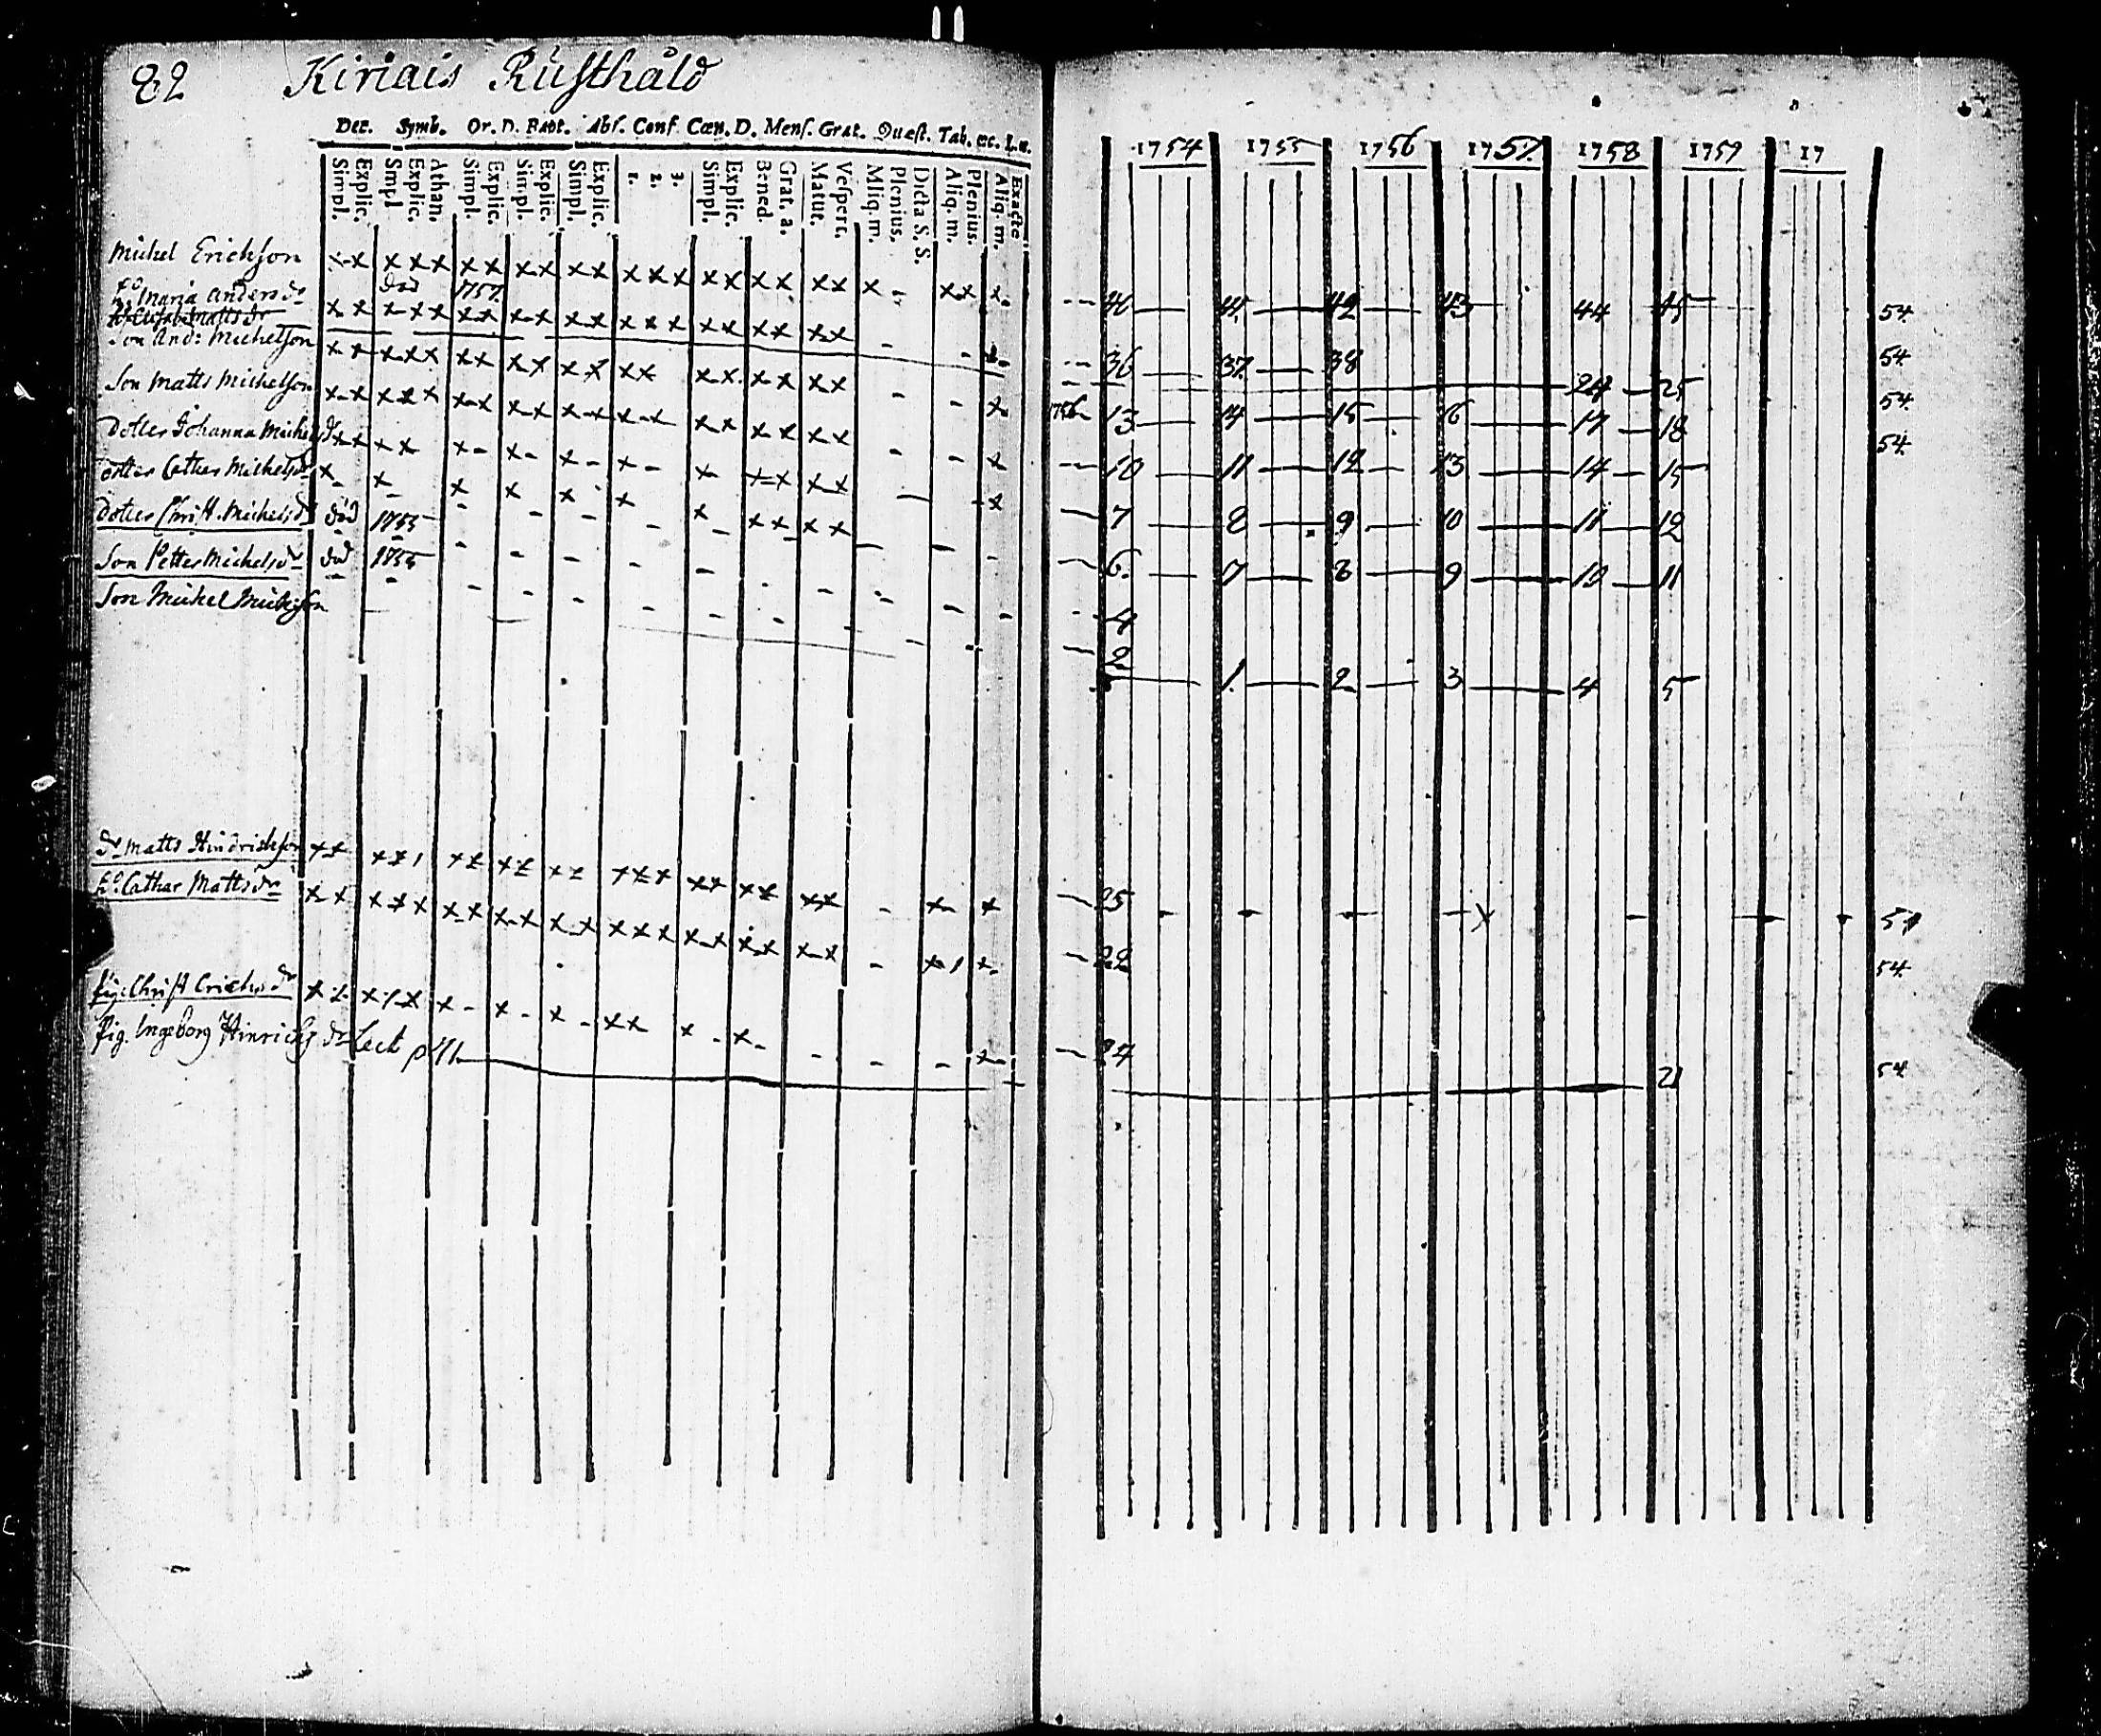 82 Kiriais Rusthåld
Dec. Symb. Or. D. Bapt. Abs. Conf. Cœn. D. Mens. Grat. Quæst. Tab. œc. L. u.
Simpl. Explic. Simpl Explic. Athan. Simpl. Explic. Simpl. Explic. Simpl. Explic. 1. 2. 3. Simpl. Explic. Bened. Grat. a. Matut. Vespert. Aliq. m. Plenius. Dicta S. S. Aliq. m. Plenius. Aliq. m. Exacte
1754 1755 1756 1757. 1758 1759 17
Michel Erichson x x x x x x x x x x x x x x x x x x x x x - x x x. 40 41. 42 43 44 45 54.
död 1757.
h:o Maria Anders dr x x x x x x x x x x x x x x x x x x x x - - x. 36 37. 38 54.
Elisabet Matts dr 24 25
Son And: Michelson x x x x x x x x x x x x x x x x x x x - - x 1756 13 14 15 16 17 18 54.
Son Matts Michelson x x x x x x x x x x x x x x x x x x x x - - x 10 11 12 13 14 15 54.
Dotter Johanna Michels dr x x x x x - x - x - x - x - x x x x - - x 7 8 9 10 11 12
Dotter Cathar Michels dr x - x - x - x - x - x - x - x x x x - - - 6. 7 8 9 10 11
Dotter Christ. Michels dr död 1755 4
Son Petter Michels dr död 1755 2
Son Michel Michelson 1. 2 3 4 5
dr Matts Hindrichson x x x x 1 x x x x x x x x x x x x x x x - x - x 25 - - - - x - - - 5
h:o Cathar Matts dr x x x x x x x x x x x x x x x x x x x x - x 1 x - 22 54.
Pig: Christ Erichs dr x x x x x x - x - x - x x x - x - - - - x - 24 54
Pig. Ingeborg Hinrichs dr Lect 21